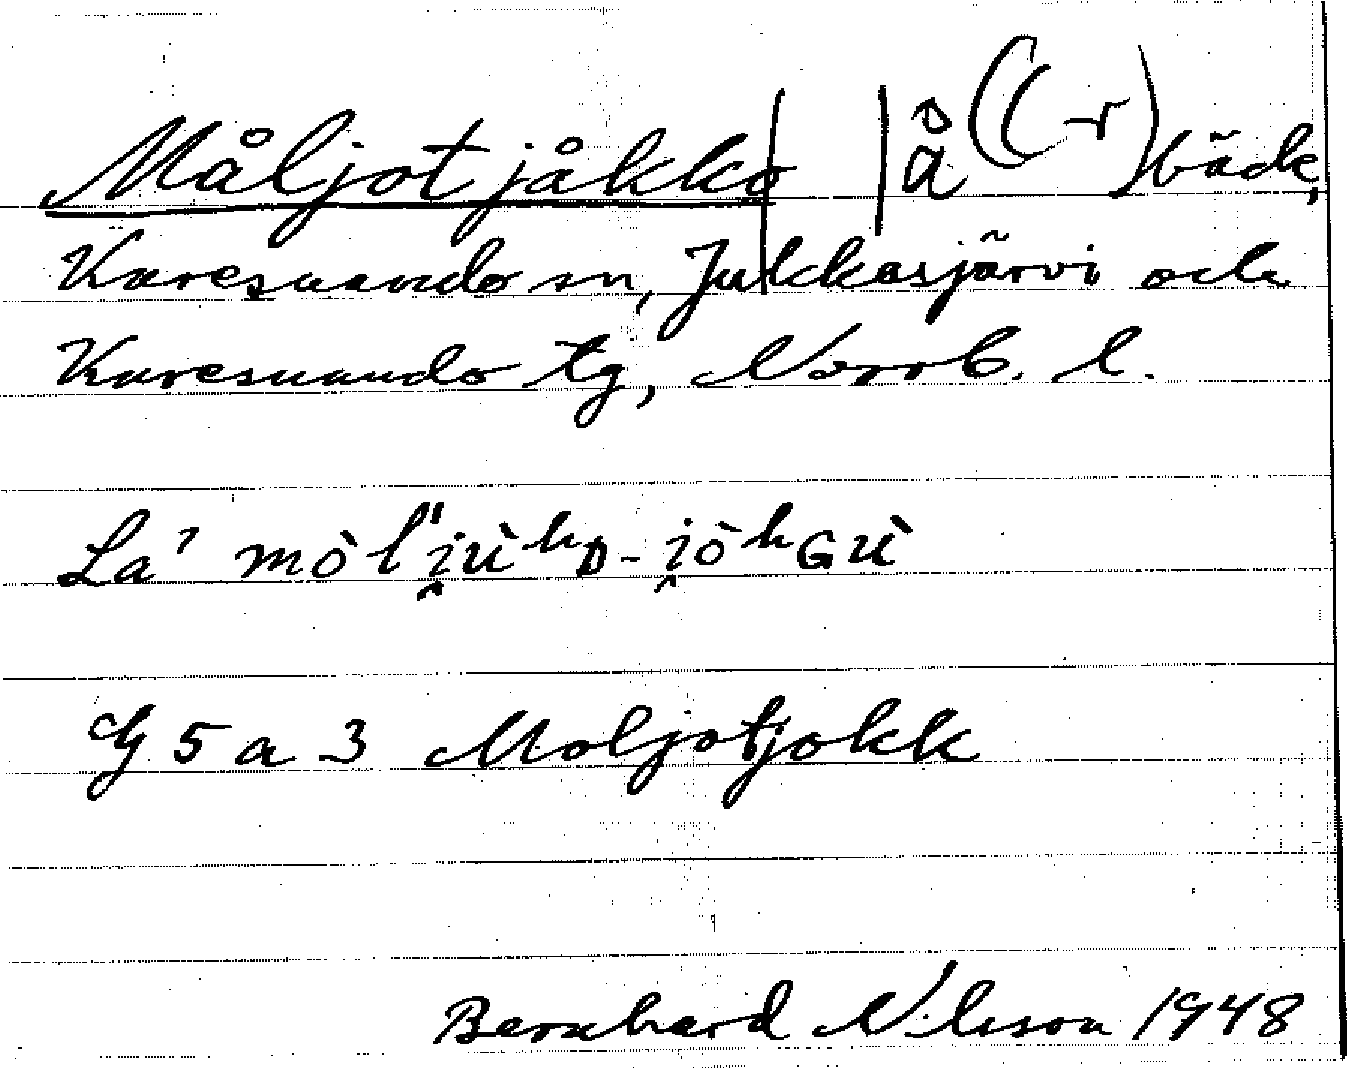 Måljotjåkko | | å ((-r) bäck,
Karesuando sn, Jukkasjärvi och
Karesuando tg, Norrb. l.
La' mòl'i̯ùʰD-i̯òʰGù
Gg 5 a 3 Moljotjokk
Bernhard Nilsson 1948